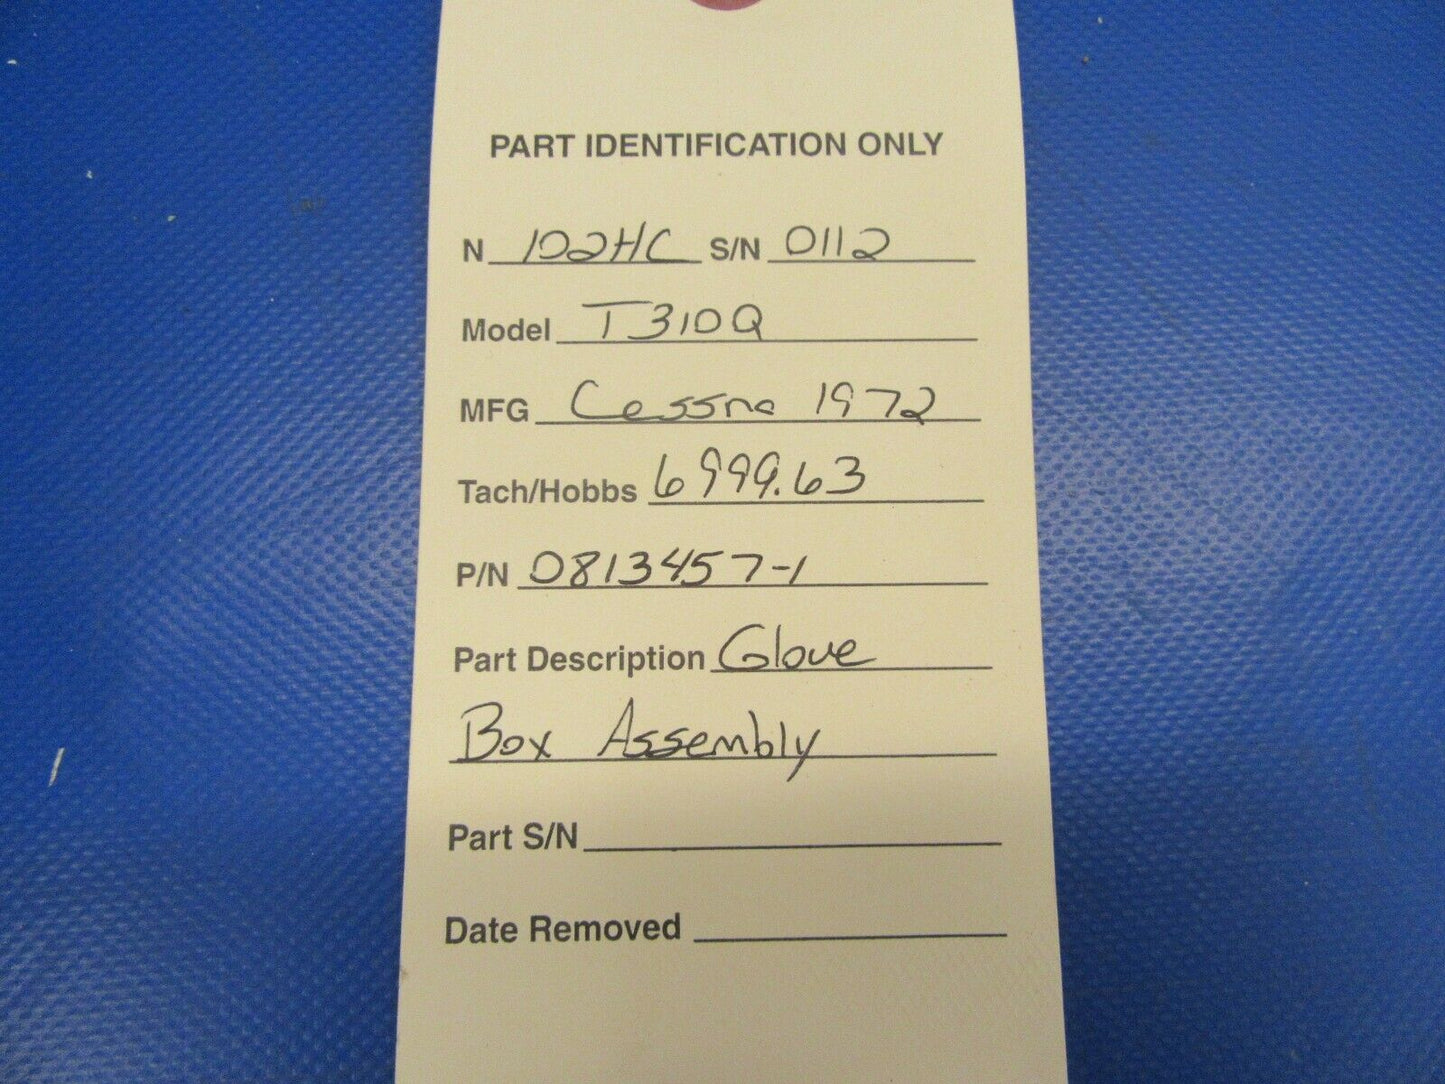 PART IDENTIFICATION ONLY
N 102HC S/N 0112
Model T310Q
MFG Cessna 1972
Tach/Hobbs 6999.63
P/N 0813457-1
Part Description Glove
Box Assembly
Part S/N
Date Removed